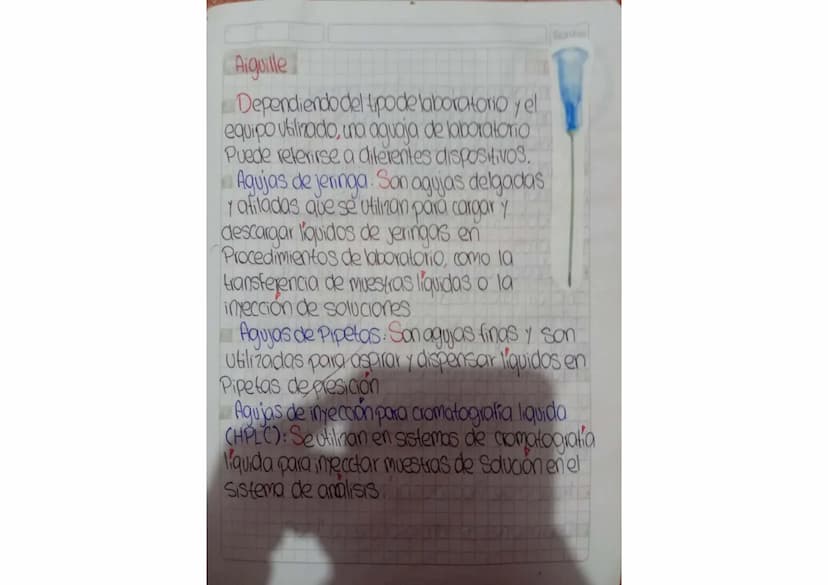 Aiguille
Dependiendo del tipo de laboratorio y el
equipo utilizado, una aguaja de laboratorio
Puede referirse a diferentes dispositivos.
Agujas de jeringa: Son agujas delgadas
y afiladas que se utilizan para cargar y
descargar líquidos de jeringas en
Procedimientos de laboratorio, como la
transferencia de muestras líquidas o la
inyección de soluciones
Agujas de Pipetas: Son agujas finas y son
utilizadas para aspirar y dispensar líquidos en
Pipetas de presición
Agujas de inyección para cromatografía liquida
(HPLC): Se utilizan en sistemas de cromatografía
líquida para inyectar muestras de solución en el
sistema de análisis